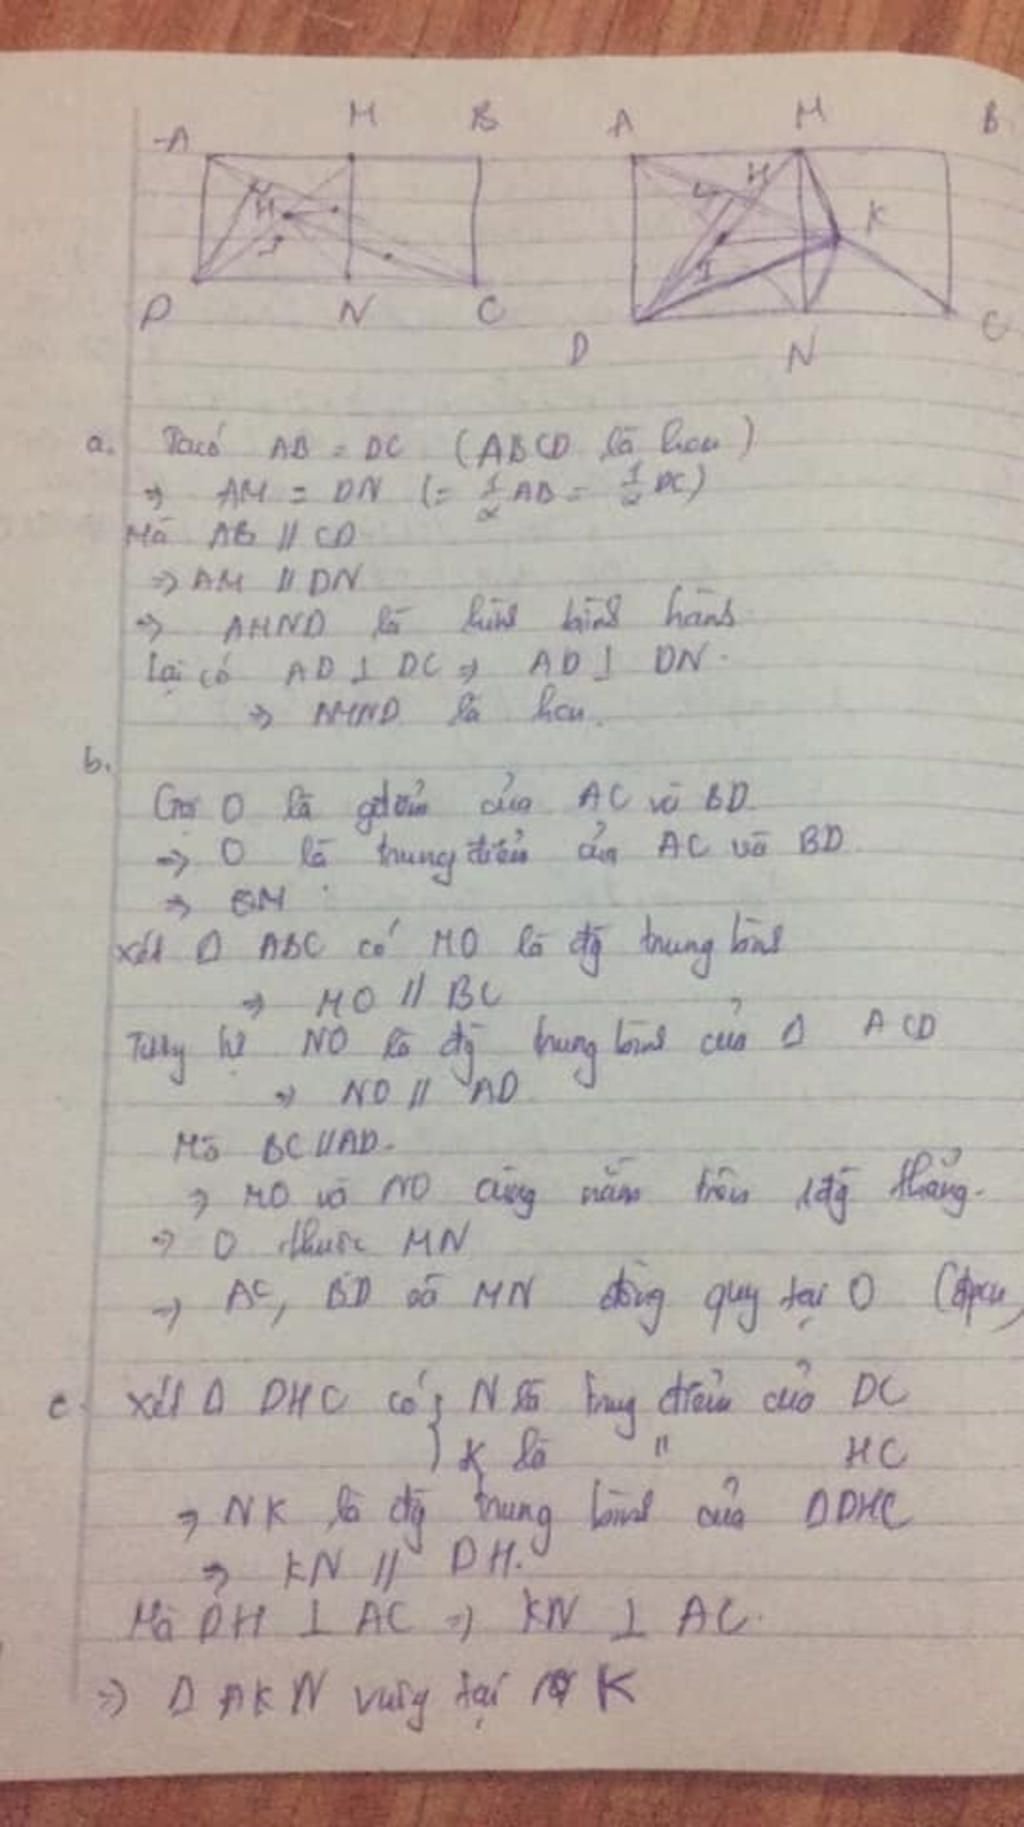 A M B
H
I
D N C
A M B
H
K
I
D N C
a. Ta có AB = DC (ABCD là hcn)
=> AM = DN (= 1/2 AB = 1/2 DC)
Mà AB // CD
=> AM // DN
=> AMND là hình bình hành
Lại có AD ⊥ DC => AD ⊥ DN.
=> AMND là hcn.
b.
Gọi O là gđiểm của AC và BD
=> O là trung điểm của AC và BD
=> OM
Xét Δ ABC có MO là đg trung bình
=> MO // BC
Tương tự NO là đg trung bình của Δ ACD
=> NO // AD
Mà BC // AD.
=> MO và NO cùng nằm trên 1 đg thẳng.
=> O thuộc MN
=> AC, BD và MN đồng quy tại O (đpcm)
c. Xét Δ DHC có } N là trung điểm của DC
} K là " HC
=> NK là đg trung bình của ΔDHC
=> KN // DH.
Mà DH ⊥ AC => KN ⊥ AC.
=> Δ AKN vuông tại K